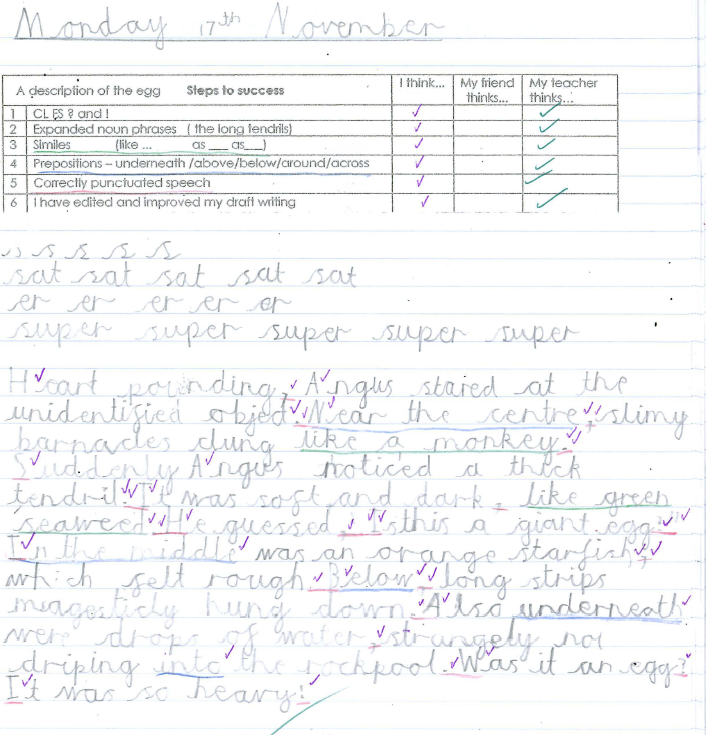 Monday 17th November
A description of the egg Steps to success I think... My friend thinks... My teacher thinks...
1 CL FS ? and !
2 Expanded noun phrases ( the long tendrils)
3 Similes (like ... as ___ as___)
4 Prepositions – underneath /above/below/around/across
5 Correctly punctuated speech
6 I have edited and improved my draft writing
s s s s s
sat sat sat sat sat
er er er er er
super super super super super
Heart pounding, Angus stared at the
unidentified object. Near the centre, slimy
barnacles clung like a monkey.
Suddenly Angus noticed a thick
tendril. It was soft and dark, like green
seaweed. He guessed, "Is this a giant egg?"
In the middle was an orange starfish,
which felt rough. Below, long strips
magesticly hung down. Also underneath
were drops of water, strangely not
driping into the rockpool. Was it an egg?
It was so heavy!